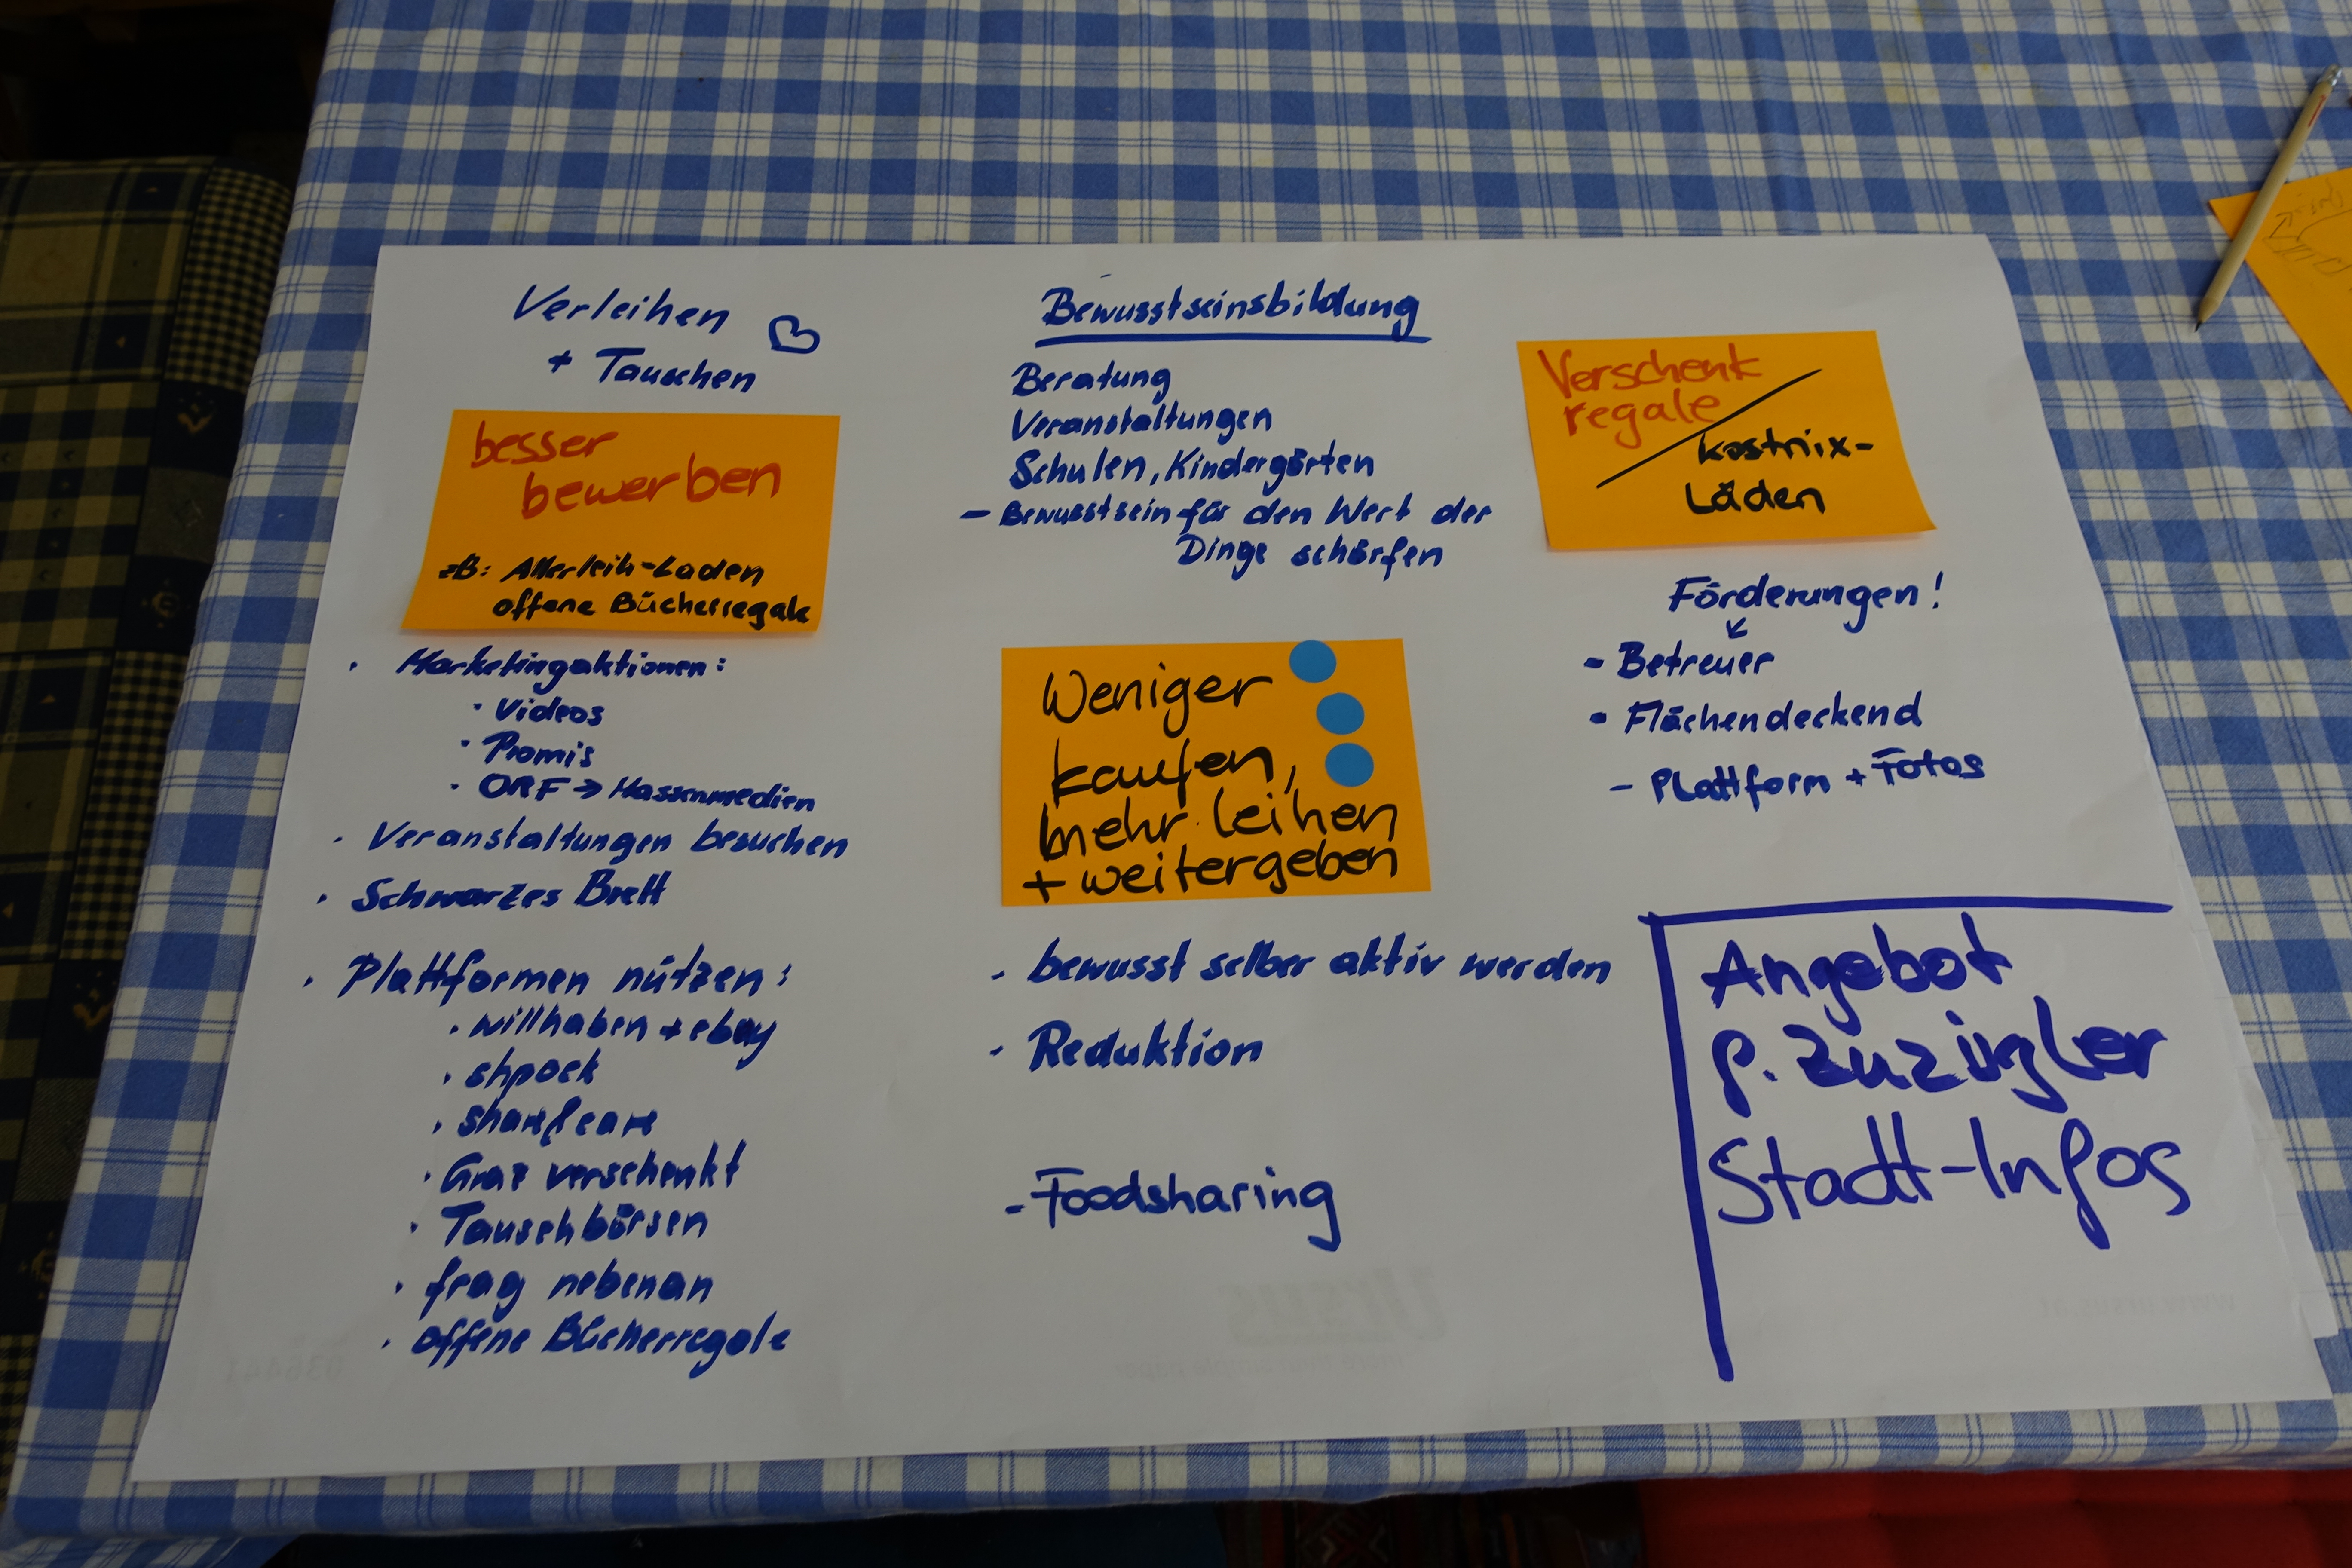 Verleihen
+ Tauschen
besser
bewerben
zB: Allerleih-Laden
offene Bücherregale
· Marketingaktionen:
· Videos
· Promis
· ORF → Massenmedien
· Veranstaltungen besuchen
· Schwarzes Brett
· Plattformen nützen:
· willhaben + ebay
· shpock
· share&care
· Graz verschenkt
· Tauschbörsen
· frag nebenan
· offene Bücherregale
Bewusstseinsbildung
Beratung
Veranstaltungen
Schulen, Kindergärten
- Bewusstsein für den Wert der
Dinge schärfen
Weniger
kaufen,
mehr leihen
+ weitergeben
- bewusst selber aktiv werden
- Reduktion
- Foodsharing
Verschenk
regale
kostnix-
Läden
Förderungen!
- Betreuer
- Flächendeckend
- Plattform + Fotos
Angebot
f. Zuzügler
Stadt-Infos
Ursus